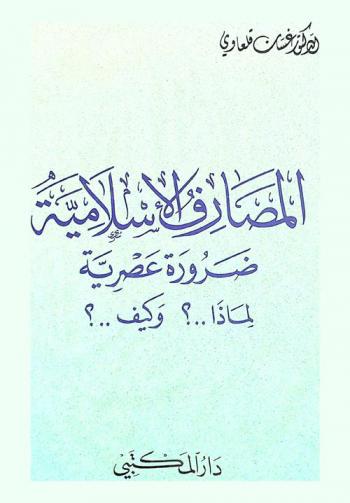 الدكتور غسان قلعاوي
المصارف الإسلامية
ضرورة عصرية
لماذا ..؟ وكيف ..؟
دار المكتبي